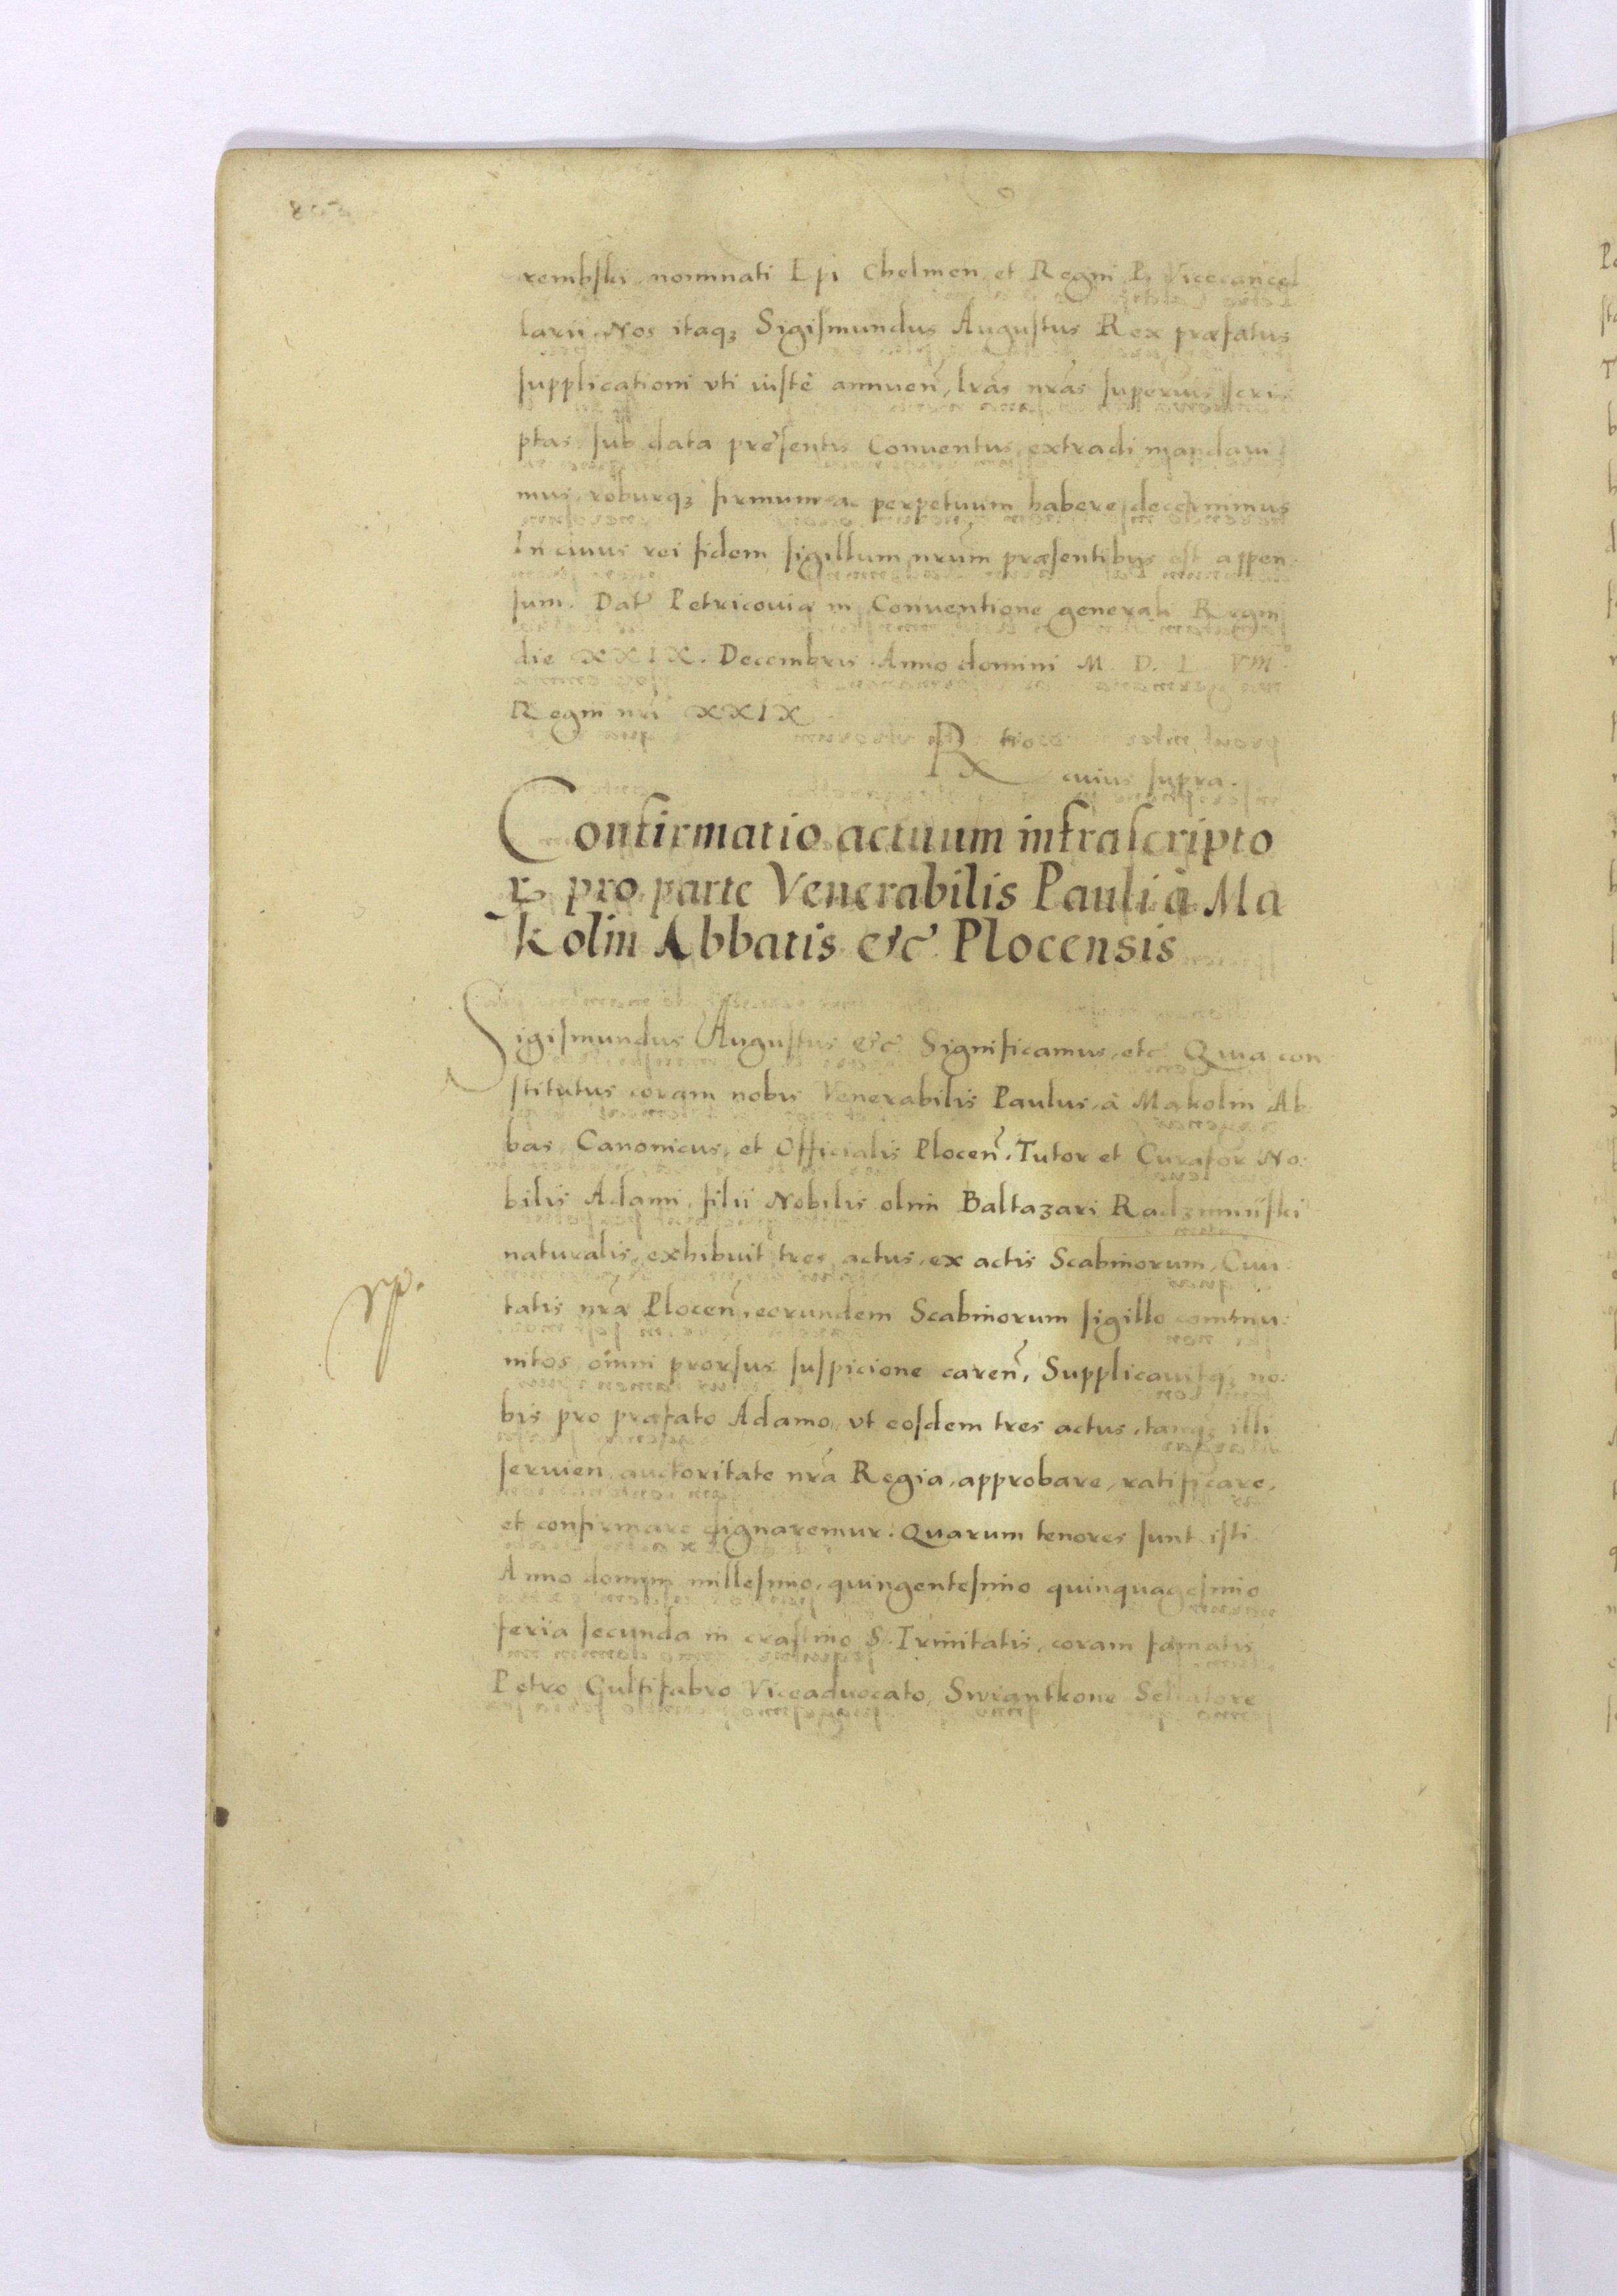 rembski nominati Epi Chelmen et Regni P. Vicecancel
larii. Nos itaq3 Sigismundus Augustus Rex præfatus
supplicationi vti iustè annuen, lras nras superius scri
ptas sub data præsentis Conuentus extradi mandaui
mus, roburq3 firmum ac perpetuum habere decernimus
In cuius rei fidem sigillum nrum præsentibus est appen
sum. Dat Petricouiæ in Conuentione generali Regni
die XXIX. Decembris. Anno domini M. D. L. VIII°
Regni nri XXIX
R
cuius supra.
Confirmatio actuum infrascripto
ꝝ pro parte Venerabilis Pauli à Ma
kolin Abbatis etc Plocensis
Sigismundus Augustus etc Significamus, etc Quia con
stitutus coram nobis Venerabilis Paulus, à Makolin Ab
bas, Canonicus, et Officialis Plocen, Tutor et Curator No:
bilis Adami, filii Nobilis olim Baltazari
naturalis, exhibuit tres actus, ex actis Scabinorum, Ciui:
tatis nræ Plocen, eorundem Scabinorum sigillo commu:
nitos, omni prorsus suspicione caren, Supplicauitq3 no:
bis pro præfato Adamo, vt eosdem tres actus, tanq3 illi
seruien, auctoritate nra Regia, approbare, ratificare,
et confirmare dignaremur. Quarum tenores sunt isti
Anno domini millesimo, quingentesimo quinquagesimo
feria secunda in crastino S. Trinitatis, coram famatis
Petro Gultifabro Viceaduocato, Swiantkone Sellatore